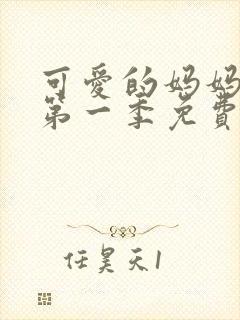 可愛的妈妈
第一季免費
任昊天1